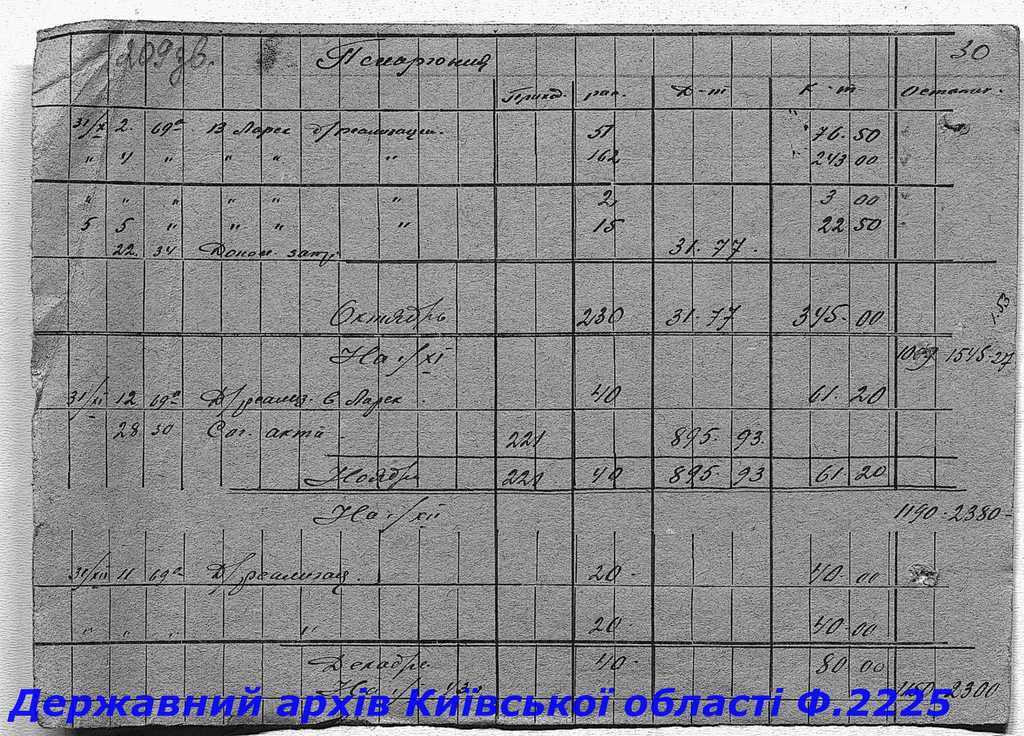 209 зв. 30
Приход. рас. Д-т К-т Остаток.
31/X 2. 69а В Ларек д/реализации. 51 76.50
" 4 " " " " 162 243 00
" " " " " " 2 3 00
5 5 " " " " 15 22 50
22. 34 31.77.
Октябрь 230 31.77 345.00
1.53
На 1/XI 1009 1545-27
31/XI 12 69а Д/реализ. в Ларек. 40 61.20
28. 30 Сог. акта 221 895.93.
Ноябрь 221 40 895.93 61.20
На 1/XII 1190-2380-
31/XII 11 69а Д/реализац. 20- 40.00
" " " " 20- 40-00
Декабрь 40- 80 00
На 1/ 1150-2300
Державний архів Київської області Ф.2225